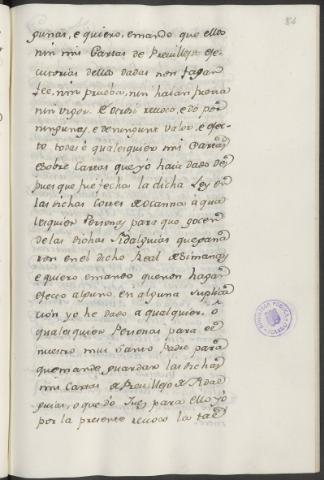 84
gunas, e quiero, e mando que ellos
nin mis Cartas de Previllejo exe-
cutorias dellas dadas non fagan
fee, nin prueba, nin haian fuerza
nin vigor. E otrosi revoco, e dó por
ningunas, e de ningunt valor, e efec-
to todas ó qualesquier mis Cartas
e Sobre Cartas que yo haia dado des
pues que fue fecha la dicha Ley en
las dichas Cortes de Ocanna á qua
lesquier Personas para que gocen
de las dichas Fidalguias que gana
ron en el dicho Real de Simancas
e quiero e mando que non hagan
efecto alguno, en alguna suplica
cion yo he dado a qualquier, ó
qualesquier Personas para
nuestro mui Santo Padre para
que mande guardar las dichas
mis Cartas de Previllejo de Fidal
guias, o que dó Juez para ello yo
por la presente revoco la tal